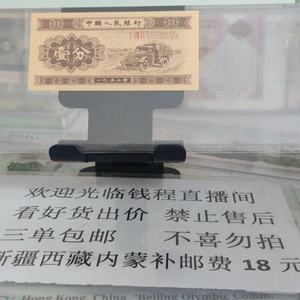 中国人民银行
壹分
一九五三年
欢迎光临钱程直播间
看好货出价 禁止售后
三单包邮 不喜勿拍
新疆西藏内蒙补邮费 18 元
Hong Kong, China "Beijing Olympic